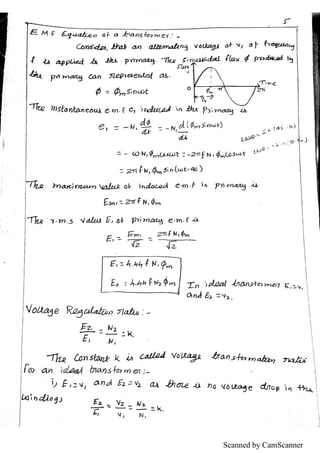 5
E M F Equation of a transformer : -
Consider, that an alternating voltage of v, of frequency
f is applied to the primary. The sinusoidal flux ϕ produced by
the primary can represented as.
ϕ = ϕm Sinωt
Flux
Time
0
2π
The instantaneous e.m.f e₁ induced in the Primary is
e₁ = - N₁ dϕ/dt = - N₁ d(ϕm Sinωt)/dt
= - ω N₁ ϕm cosωt = -2πf N₁ ϕm cosωt
= 2πf N₁ ϕm Sin(ωt-90)
The maximum value of induced e.m.f in primary is
Em₁ = 2πf N₁ ϕm
The r.m.s value E₁ of primary e.m.f is
E₁ = Em₁/√2 = 2πf N₁ ϕm/√2
E₁ = 4.44 f N₁ ϕm
E₂ = 4.44 f N₂ ϕm
In ideal transformer E₁=V₁
and E₂ = V₂.
Voltage Regulation ratio : -
E₂/E₁ = N₂/N₁ = K.
The Constant K is called Voltage transformation ratio
For an ideal transformer :-
i) E₁=V₁ and E₂ = V₂ as there is no voltage drop in the
windings
E₂/E₁ = V₂/V₁ = N₂/N₁ = K.
Scanned by CamScanner